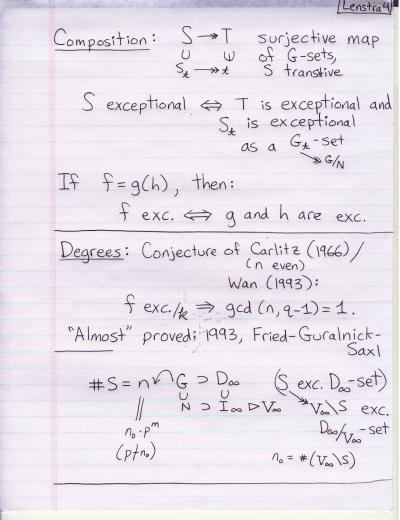 Lenstra 4
Composition: S ↠ T surjective map
∪ ∪ of G-sets,
S_t ↠ t S transtive
S exceptional ⇔ T is exceptional and
S_t is exceptional
as a G_t-set
↠ G/N
If f = g(h), then:
f exc. ⇔ g and h are exc.
Degrees: Conjecture of Carlitz (1966)/
(n even)
Wan (1993):
f exc./k ⇒ gcd(n, q-1) = 1.
"Almost" proved: 1993, Fried-Guralnick-
Saxl
#S = n ↶ G ⊃ D∞ (S exc. D∞-set)
|| ∪ ∪
N ⊃ I∞ ▷ V∞ ↠ V∞\S exc.
n₀·p^m D∞/V∞-set
(p∤n₀) n₀ = #(V∞\S)